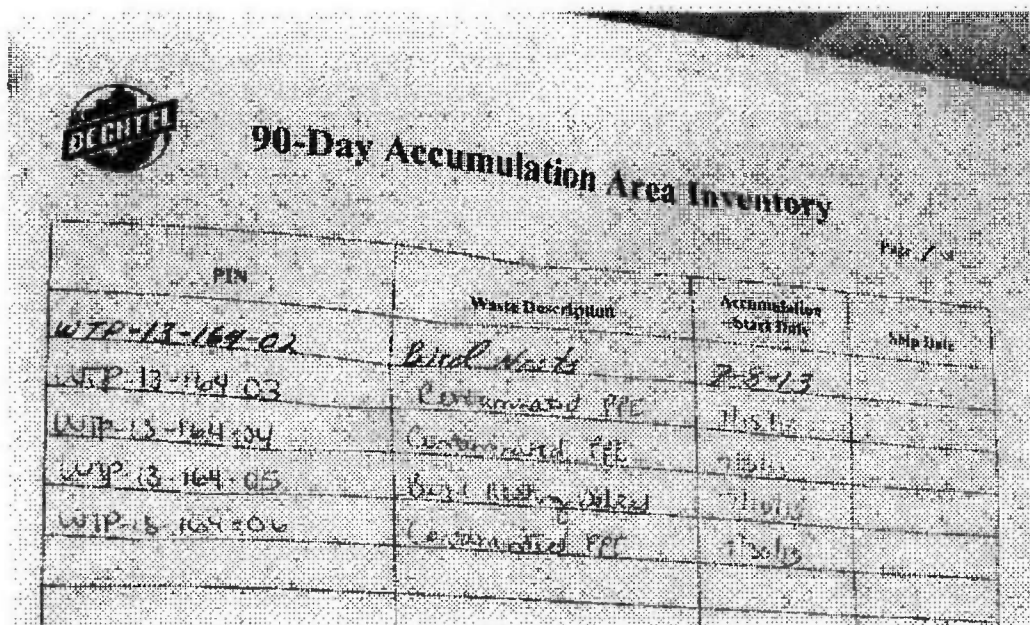 BECHTEL
90-Day Accumulation Area Inventory
Page 1
PIN Waste Description Accumulation Start Date Ship Date
WTP-13-164-02 Bird Nests 7-8-13
WTP-13-164-03 Contaminated PPE
WTP-13-164-04 Contaminated PPE
WTP-13-164-05 Bird
WTP-13-164-06 Contaminated PPE 7/30/13